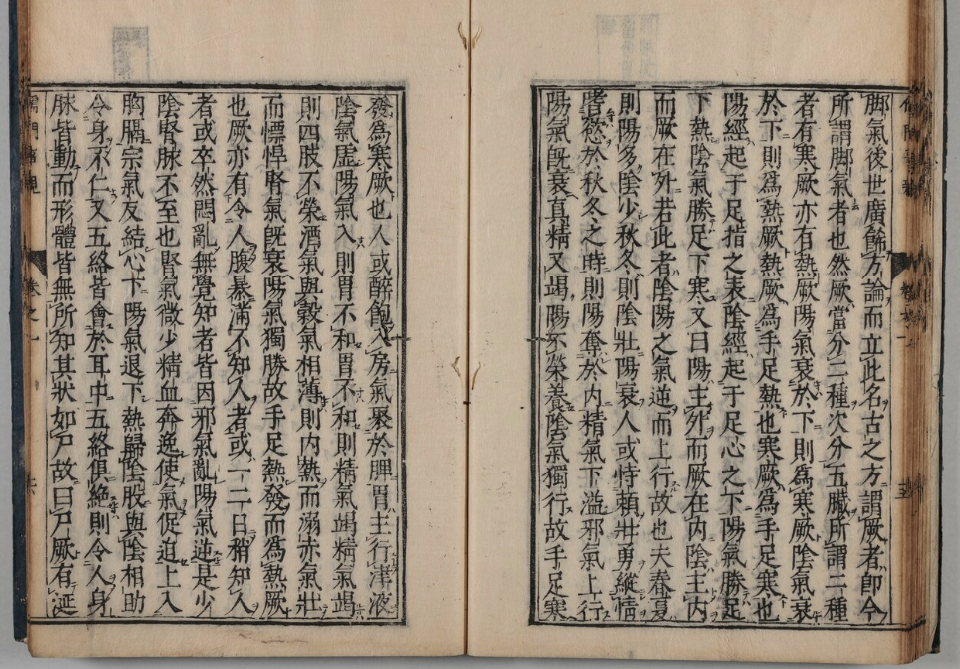 脚氣後世廣飾方論而立此名古之方謂厥者卽今
所謂脚氣者也然厥當分二種次分五臓所謂二種
者有寒厥亦有熱厥陽氣衰於下則爲寒厥陰氣衰
於下則爲熱厥熱厥爲手足熱也寒厥爲手足寒也
陽經起于足指之表陰經起于足心之下陽氣勝足
下熱陰氣勝足下寒又曰陽主外而厥在内陰主内
而厥在外若此者陰陽之氣逆而上行故也夫春夏
則陽多陰少秋冬則陰壯陽衰人或恃賴壯勇縱情
嗜慾於秋冬之時則陽奪於内精氣下溢邪氣上行
陽氣旣衰真精又竭陽不榮養陰氣獨行故手足寒
發爲寒厥也人或醉飽入房氣聚於脾胃主行津液
陰氣虛陽氣入則胃不和胃不和則精氣竭精氣竭
則四肢不榮酒氣與穀氣相薄則内熱而溺赤氣壯
而慓悍腎氣旣衰陽氣獨勝故手足熱發而爲熱厥
也厥亦有令人腹暴滿不知人者或一二日稍知人
者或卒然悶亂無覺知者皆因邪氣亂陽氣逆是少
陰腎脉不至也腎氣微少精血奔逸使氣促迫上入
胸膈宗氣反結心下陽氣退下熱歸陰股與陰相助
令身不仁又五絡皆會於耳中五絡俱絶則令人身
脉皆動而形體皆無所知其狀如尸故曰尸厥有涎
儒門事親
卷之一
六